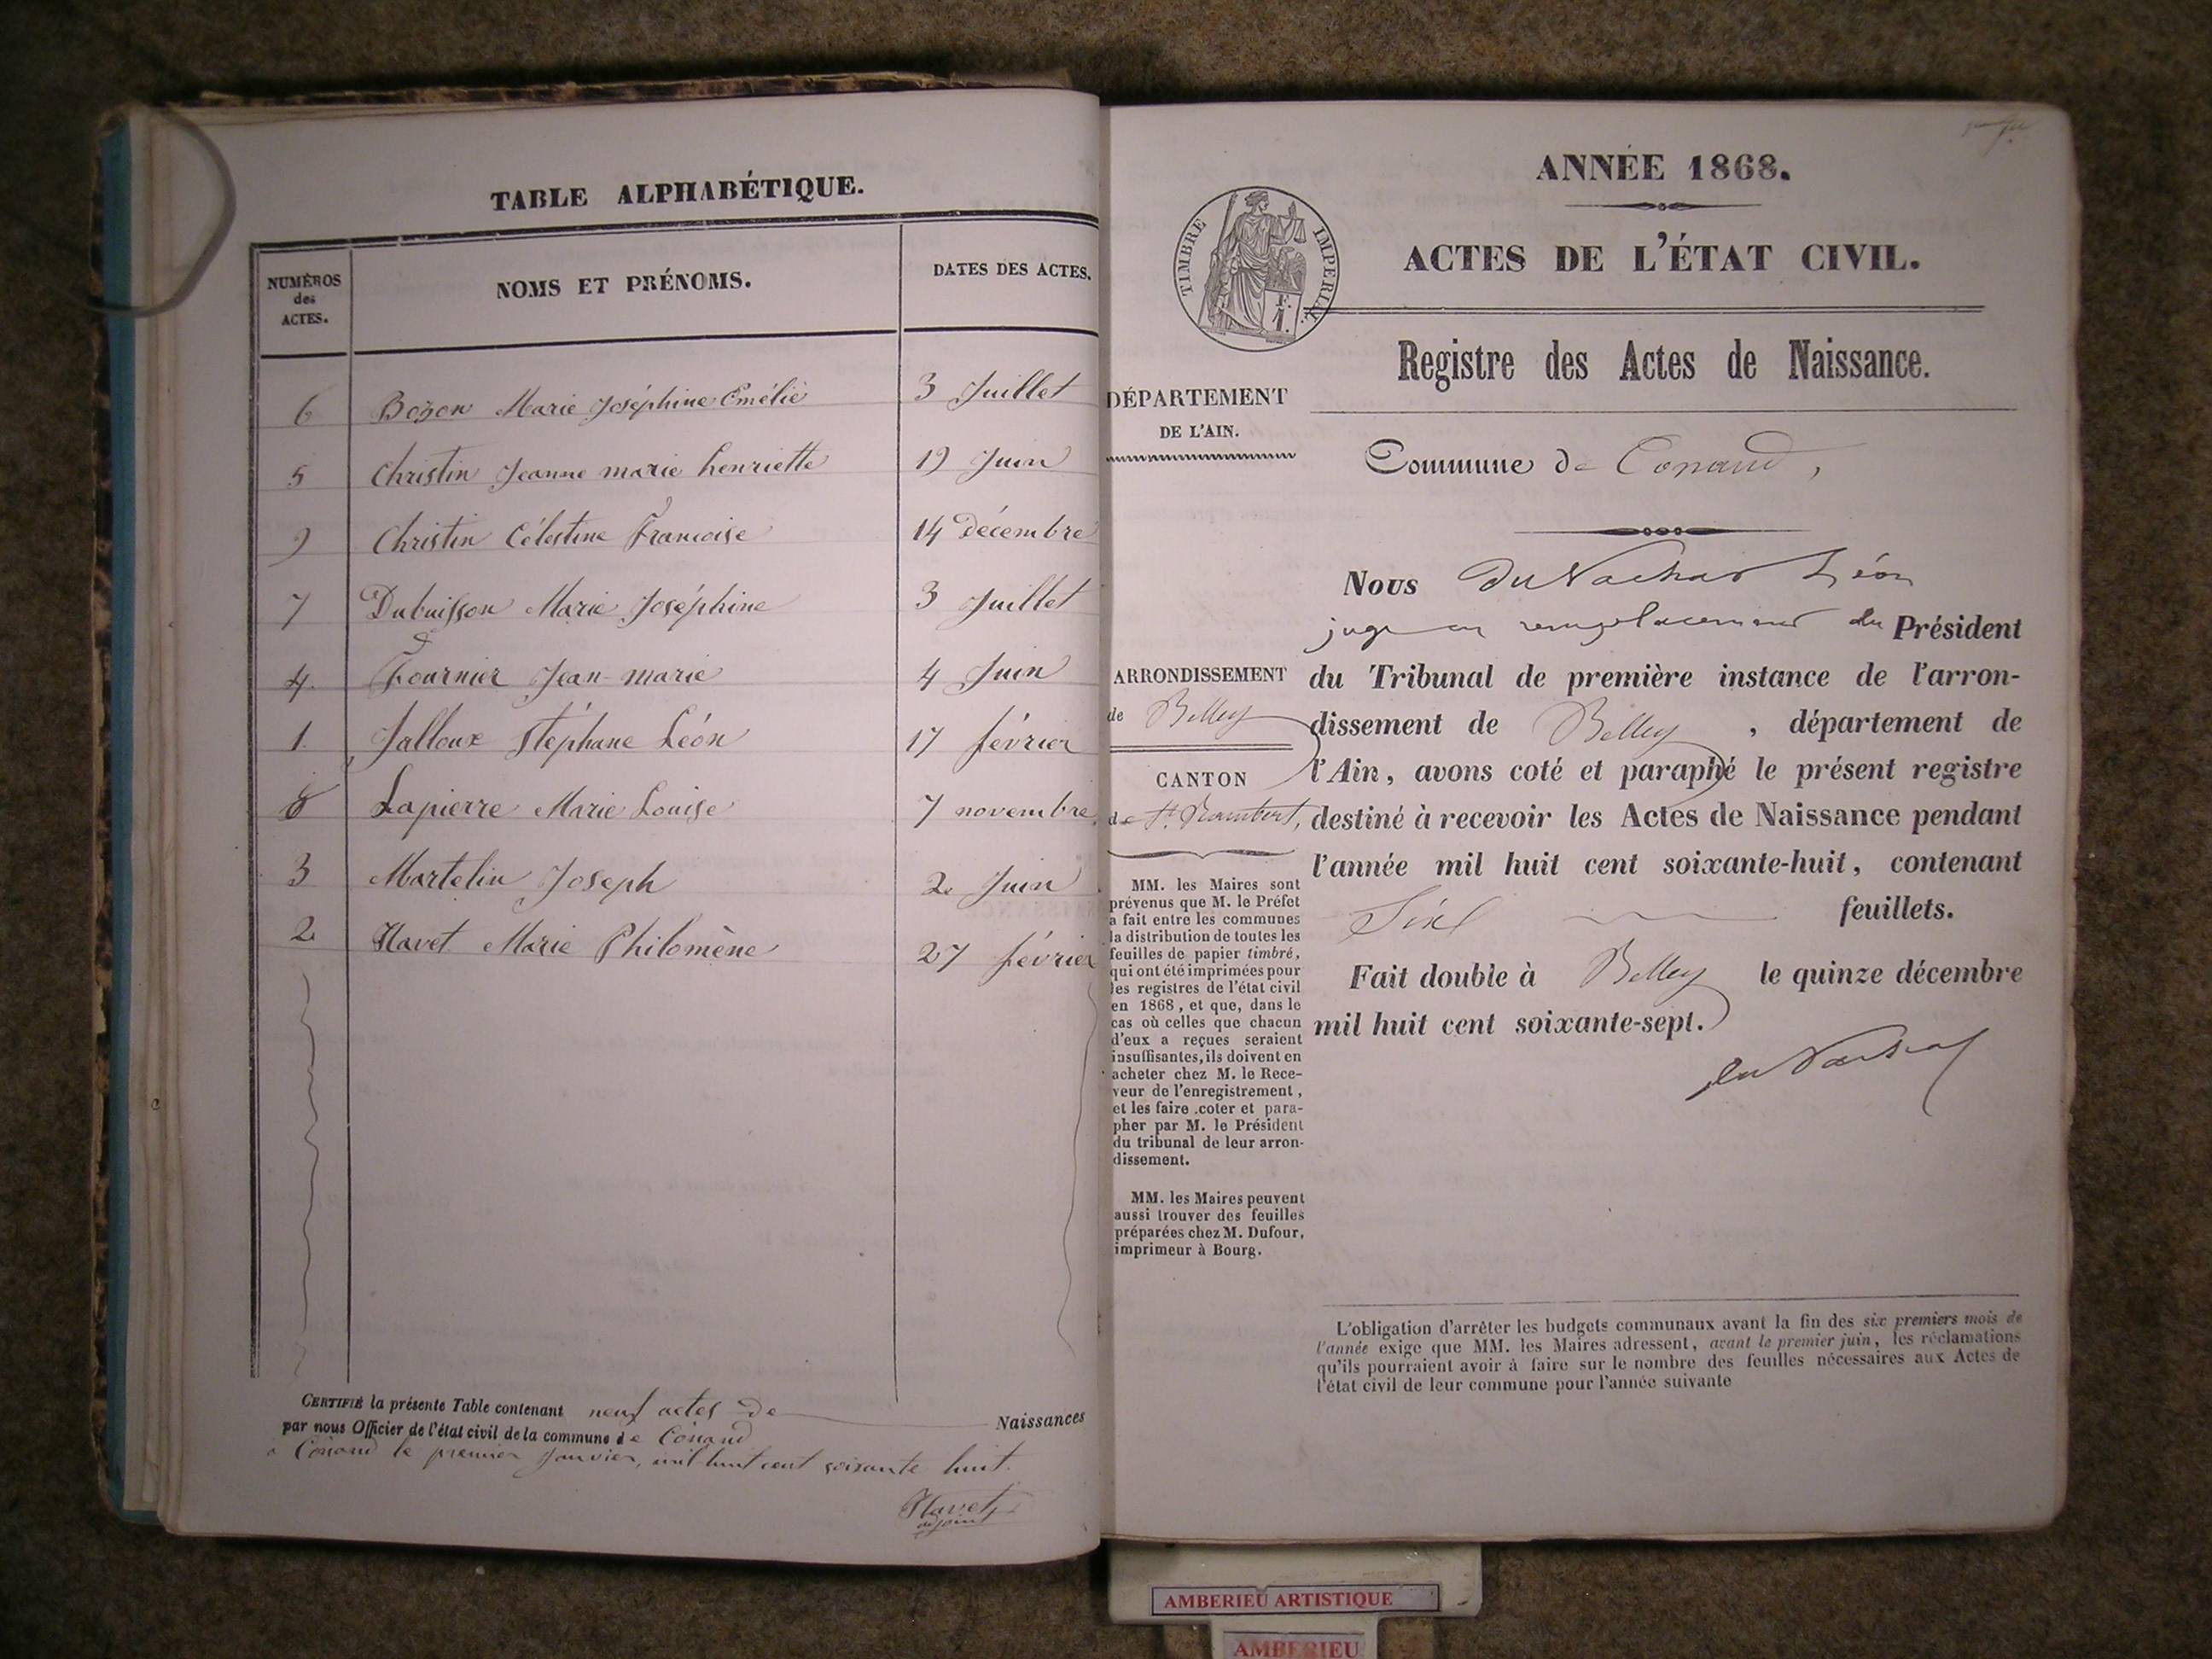 TABLE ALPHABÉTIQUE.
NUMÉROS des ACTES. NOMS ET PRÉNOMS. DATES DES ACTES.
6 Bozon Marie Joséphine Emélie 3 Juillet
5 Christin Jeanne marie henriette 19 Juin
9 Christin Célestine Francoise 14 décembre
7 Dubuisson Marie Joséphine 3 Juillet
4. Fournier Jean-marie 4 Juin
1. Jalloux Stéphane Léon 17 février
8 Lapierre Marie Louise 7 novembre
3 Martelin Joseph 2 Juin
2 Navet Marie Philomène 27 février
CERTIFIÉ la présente Table contenant neuf actes de Naissances
par nous Officier de l'état civil de la commune de Conand
a Conand le premier Janvier, mil huit cent soixante huit.
Navet
adjoint
ANNÉE 1868.
TIMBRE IMPERIAL
ACTES DE L'ÉTAT CIVIL.
Registre des Actes de Naissance.
DÉPARTEMENT
DE L'AIN.
Commune de Conand,
ARRONDISSEMENT
de Belley
CANTON
de St. Rambert,
MM. les Maires sont
prévenus que M. le Préfet
a fait entre les communes
la distribution de toutes les
feuilles de papier timbré,
qui ont été imprimées pour
les registres de l'état civil
en 1868, et que, dans le
cas où celles que chacun
d'eux a reçues seraient
insuffisantes, ils doivent en
acheter chez M. le Rece-
veur de l'enregistrement,
et les faire .coter et para-
pher par M. le Président
du tribunal de leur arron-
dissement.
MM. les Maires peuvent
aussi trouver des feuilles
préparées chez M. Dufour,
imprimeur à Bourg.
Nous Léon
juge en remplacement du Président
du Tribunal de première instance de l'arron-
dissement de Belley, département de
l'Ain, avons coté et paraphé le présent registre
destiné à recevoir les Actes de Naissance pendant
l'année mil huit cent soixante-huit, contenant
feuillets.
Fait double à Belley le quinze décembre
mil huit cent soixante-sept.
L'obligation d'arrêter les budgets communaux avant la fin des six premiers mois de
l'année exige que MM. les Maires adressent, avant le premier juin, les réclamations
qu'ils pourraient avoir à faire sur le nombre des feuilles nécessaires aux Actes de
l'état civil de leur commune pour l'année suivante
AMBERIEU ARTISTIQUE
AMBERIEU